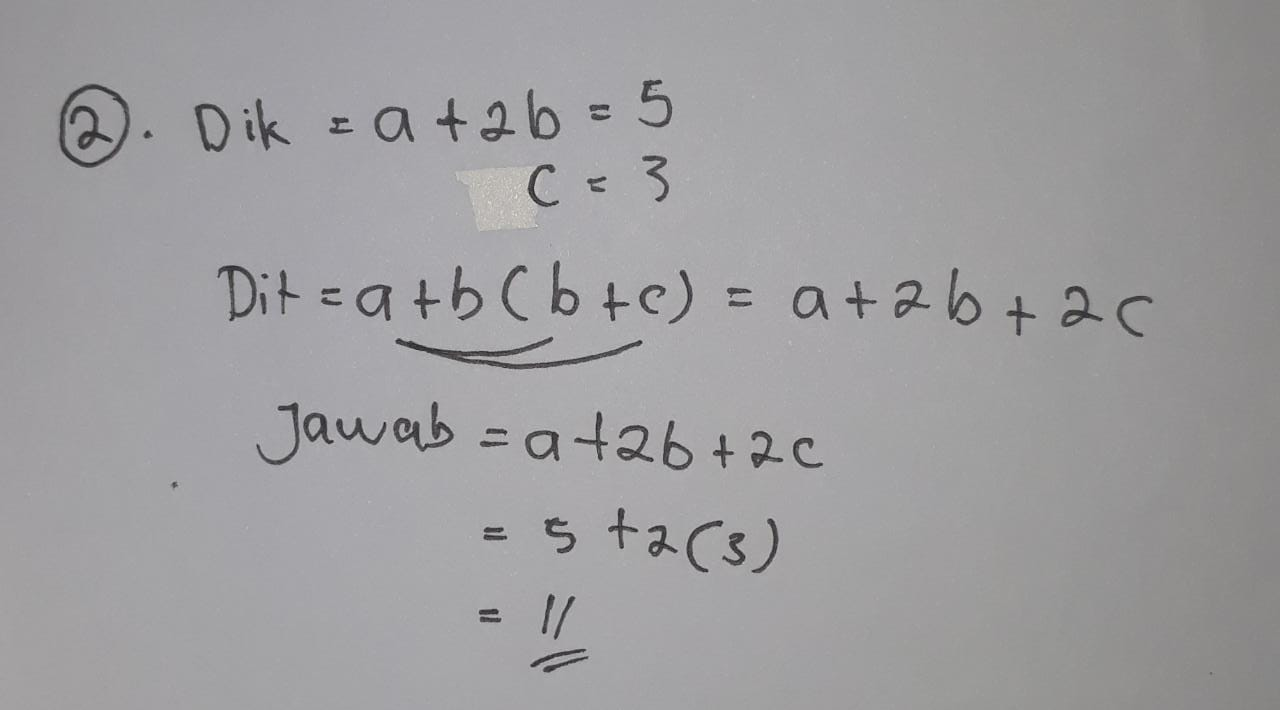 ②. Dik = a + 2b = 5
C = 3
Dit = a + b (b + c) = a + 2b + 2c
Jawab = a + 2b + 2c
= 5 + 2(3)
= 11